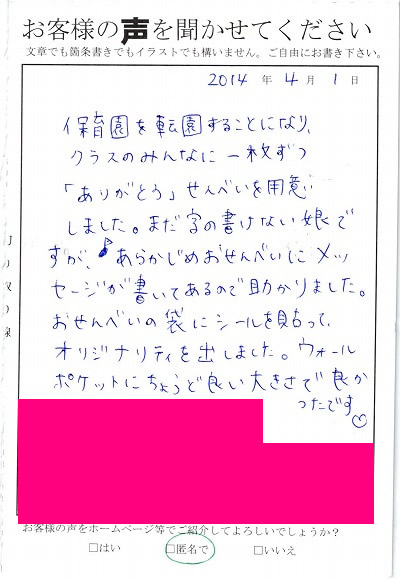 お客様の声を聞かせてください
文章でも箇条書きでもイラストでも構いません。ご自由にお書き下さい。
2014 年 4 月 1 日
保育園を転園することになり、
クラスのみんなに一枚ずつ
「ありがとう」せんべいを用意
しました。まだ字の書けない娘で
すが、♪あらかじめおせんべいにメッ
セージが書いてあるので助かりました。
おせんべいの袋にシールを貼って、
オリジナリティを出しました。ウォール
ポケットにちょうど良い大きさで良か
ったです♡
お客様の声をホームページ等でご紹介してよろしいでしょうか?
□はい □匿名で □いいえ